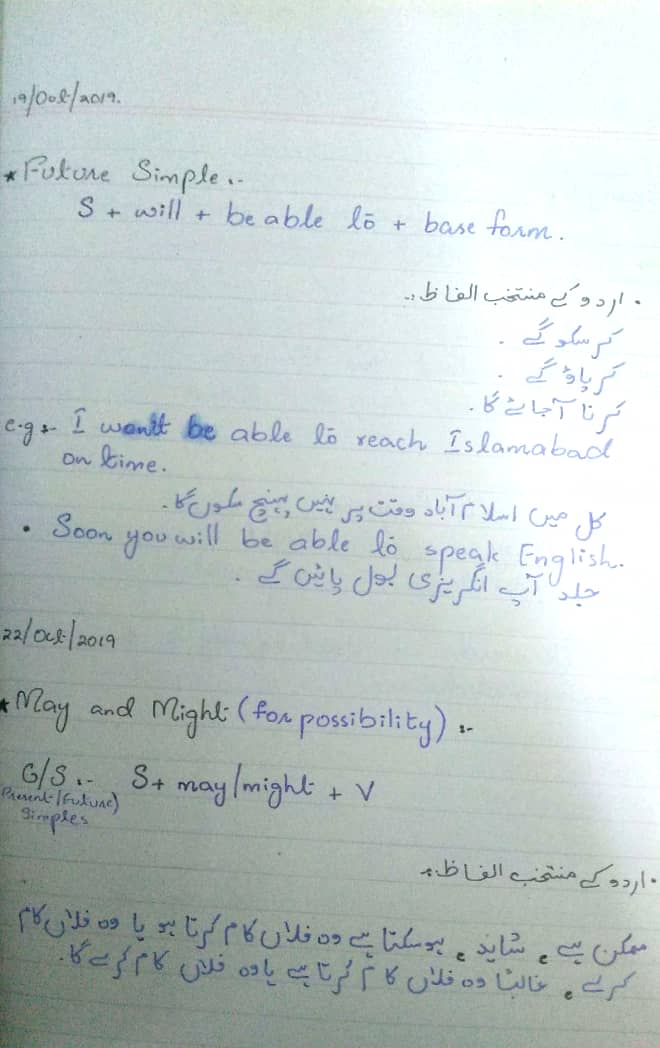 19/Oct/2019.
* Future Simple :-
S + will + be able to + base form.
• اردو کے منتخب الفاظ :-
کر سکو گے ۔
کر پاؤ گے ۔
کرنا آجائے گا۔
e.g :- I won't be able to reach Islamabad
on time.
کل میں اسلام آباد وقت پر نہیں پہنچ سکوں گا۔
• Soon you will be able to speak English.
جلد آپ انگریزی بول پائیں گے ۔
22/Oct/2019
* May and Might (for possibility) :-
G/S :- S + may/might + V
(Present/Future)
Simples
• اردو کے منتخب الفاظ :-
ممکن ہے ، شاید ، ہوسکتا ہے وہ فلاں کام کرتا ہو یا وہ فلاں کام
کرلے ، غالباً وہ فلاں کام کرتا ہے یا وہ فلاں کام کرے گا۔